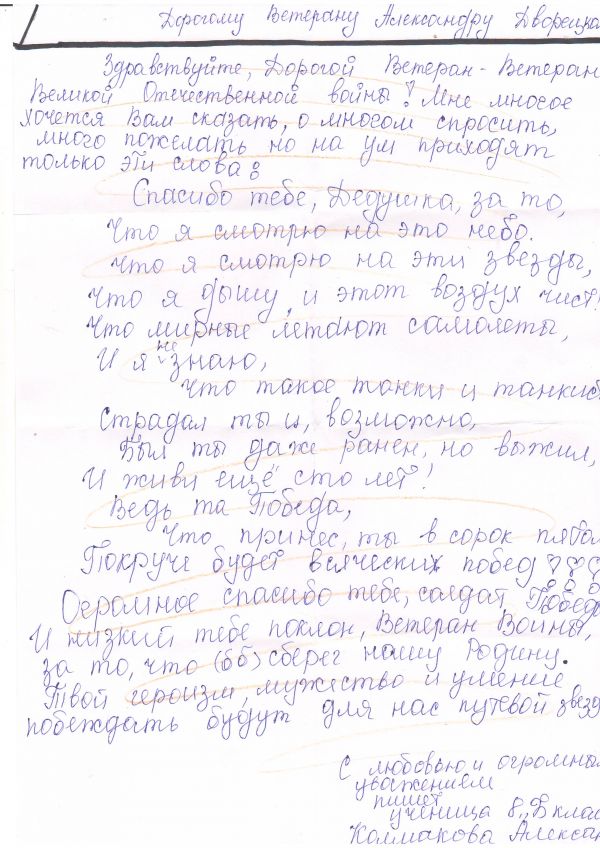 Дорогому Ветерану Александру Дворецка
Здравствуйте, Дорогой Ветеран - Ветеран
Великой Отечественной войны! Мне многое
хочется Вам сказать, о многом спросить,
много пожелать но на ум приходят
только эти слова:
Спасибо тебе, Дедушка, за то,
Что я смотрю на это небо.
Что я смотрю на эти звезды,
Что я дышу, и этот воздух чист!
Что мирные летают самолеты,
И я не знаю,
Что такое танки и танкис
Страдал ты и, возможно,
Был ты даже ранен, но выжил,
И живи ещё сто лет!
Ведь та Победа,
Что принес, ты в сорок пятом
Покруче будет всяческих побед !!!
Огромное спасибо тебе, солдат Победы
И низкий тебе поклон, Ветеран Войны,
за то, что (бб) сберег нашу Родину.
Твой героизм, мужество и умение
побеждать будут для нас путевой звезд
С любовью и огромным
уважением
пишет
ученица 8 „В клас
Колмакова Алексан